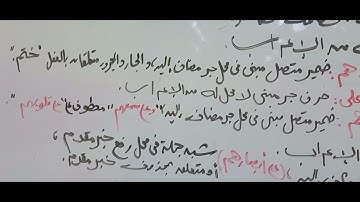 من الإعراب
هم: ضمير متصل مبني في محل جر مضاف إليه، والجار والمجرور متعلقان بالفعل "ختم".
على: حرف جر مبني لا محل له من الإعراب
هم: ضمير متصل مبني في محل جر مضاف إليه "وعلى سمعهم" معطوف على "على قلوبهم"
الإعراب.
شبه جملة في محل رفع خبر مقدم،
(على أبصارهم) أو متعلقه بمحذوف خبر مقدم.